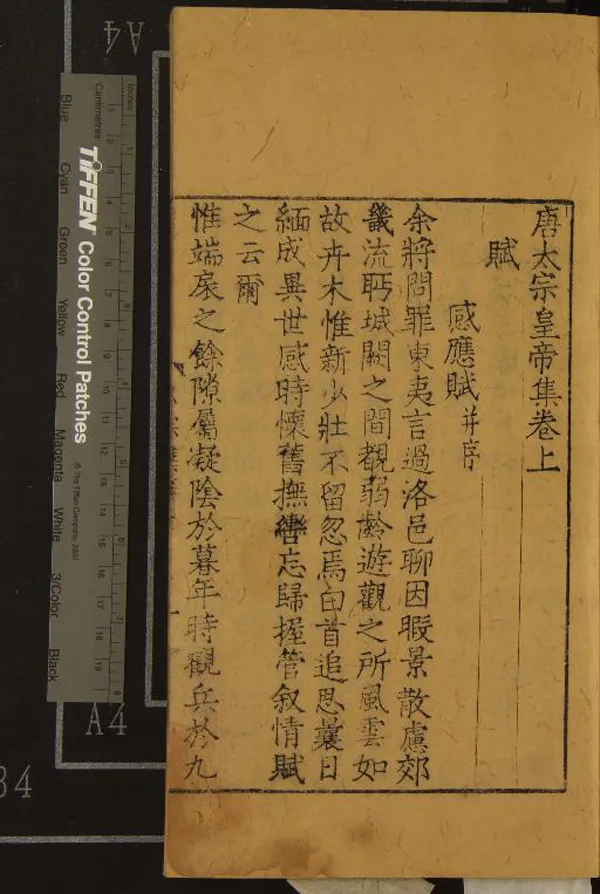 唐太宗皇帝集卷上
賦
感應賦并序
余將問罪東夷言過洛邑聊因暇景散慮郊
畿流眄城闕之間覩弱齡遊觀之所風雲如
故卉木惟新少壯不留忽焉白首追思曩日
緬成異世感時懷舊撫轡忘歸握管叙情賦
之云爾
惟端扆之餘隙屬凝陰於暮年時觀兵於九
Inches
Centimetres
TIFFEN Color Control Patches
© The Tiffen Company, 2007
Blue Cyan Green Yellow Red Magenta White 3/Color Black
A4
A4
34